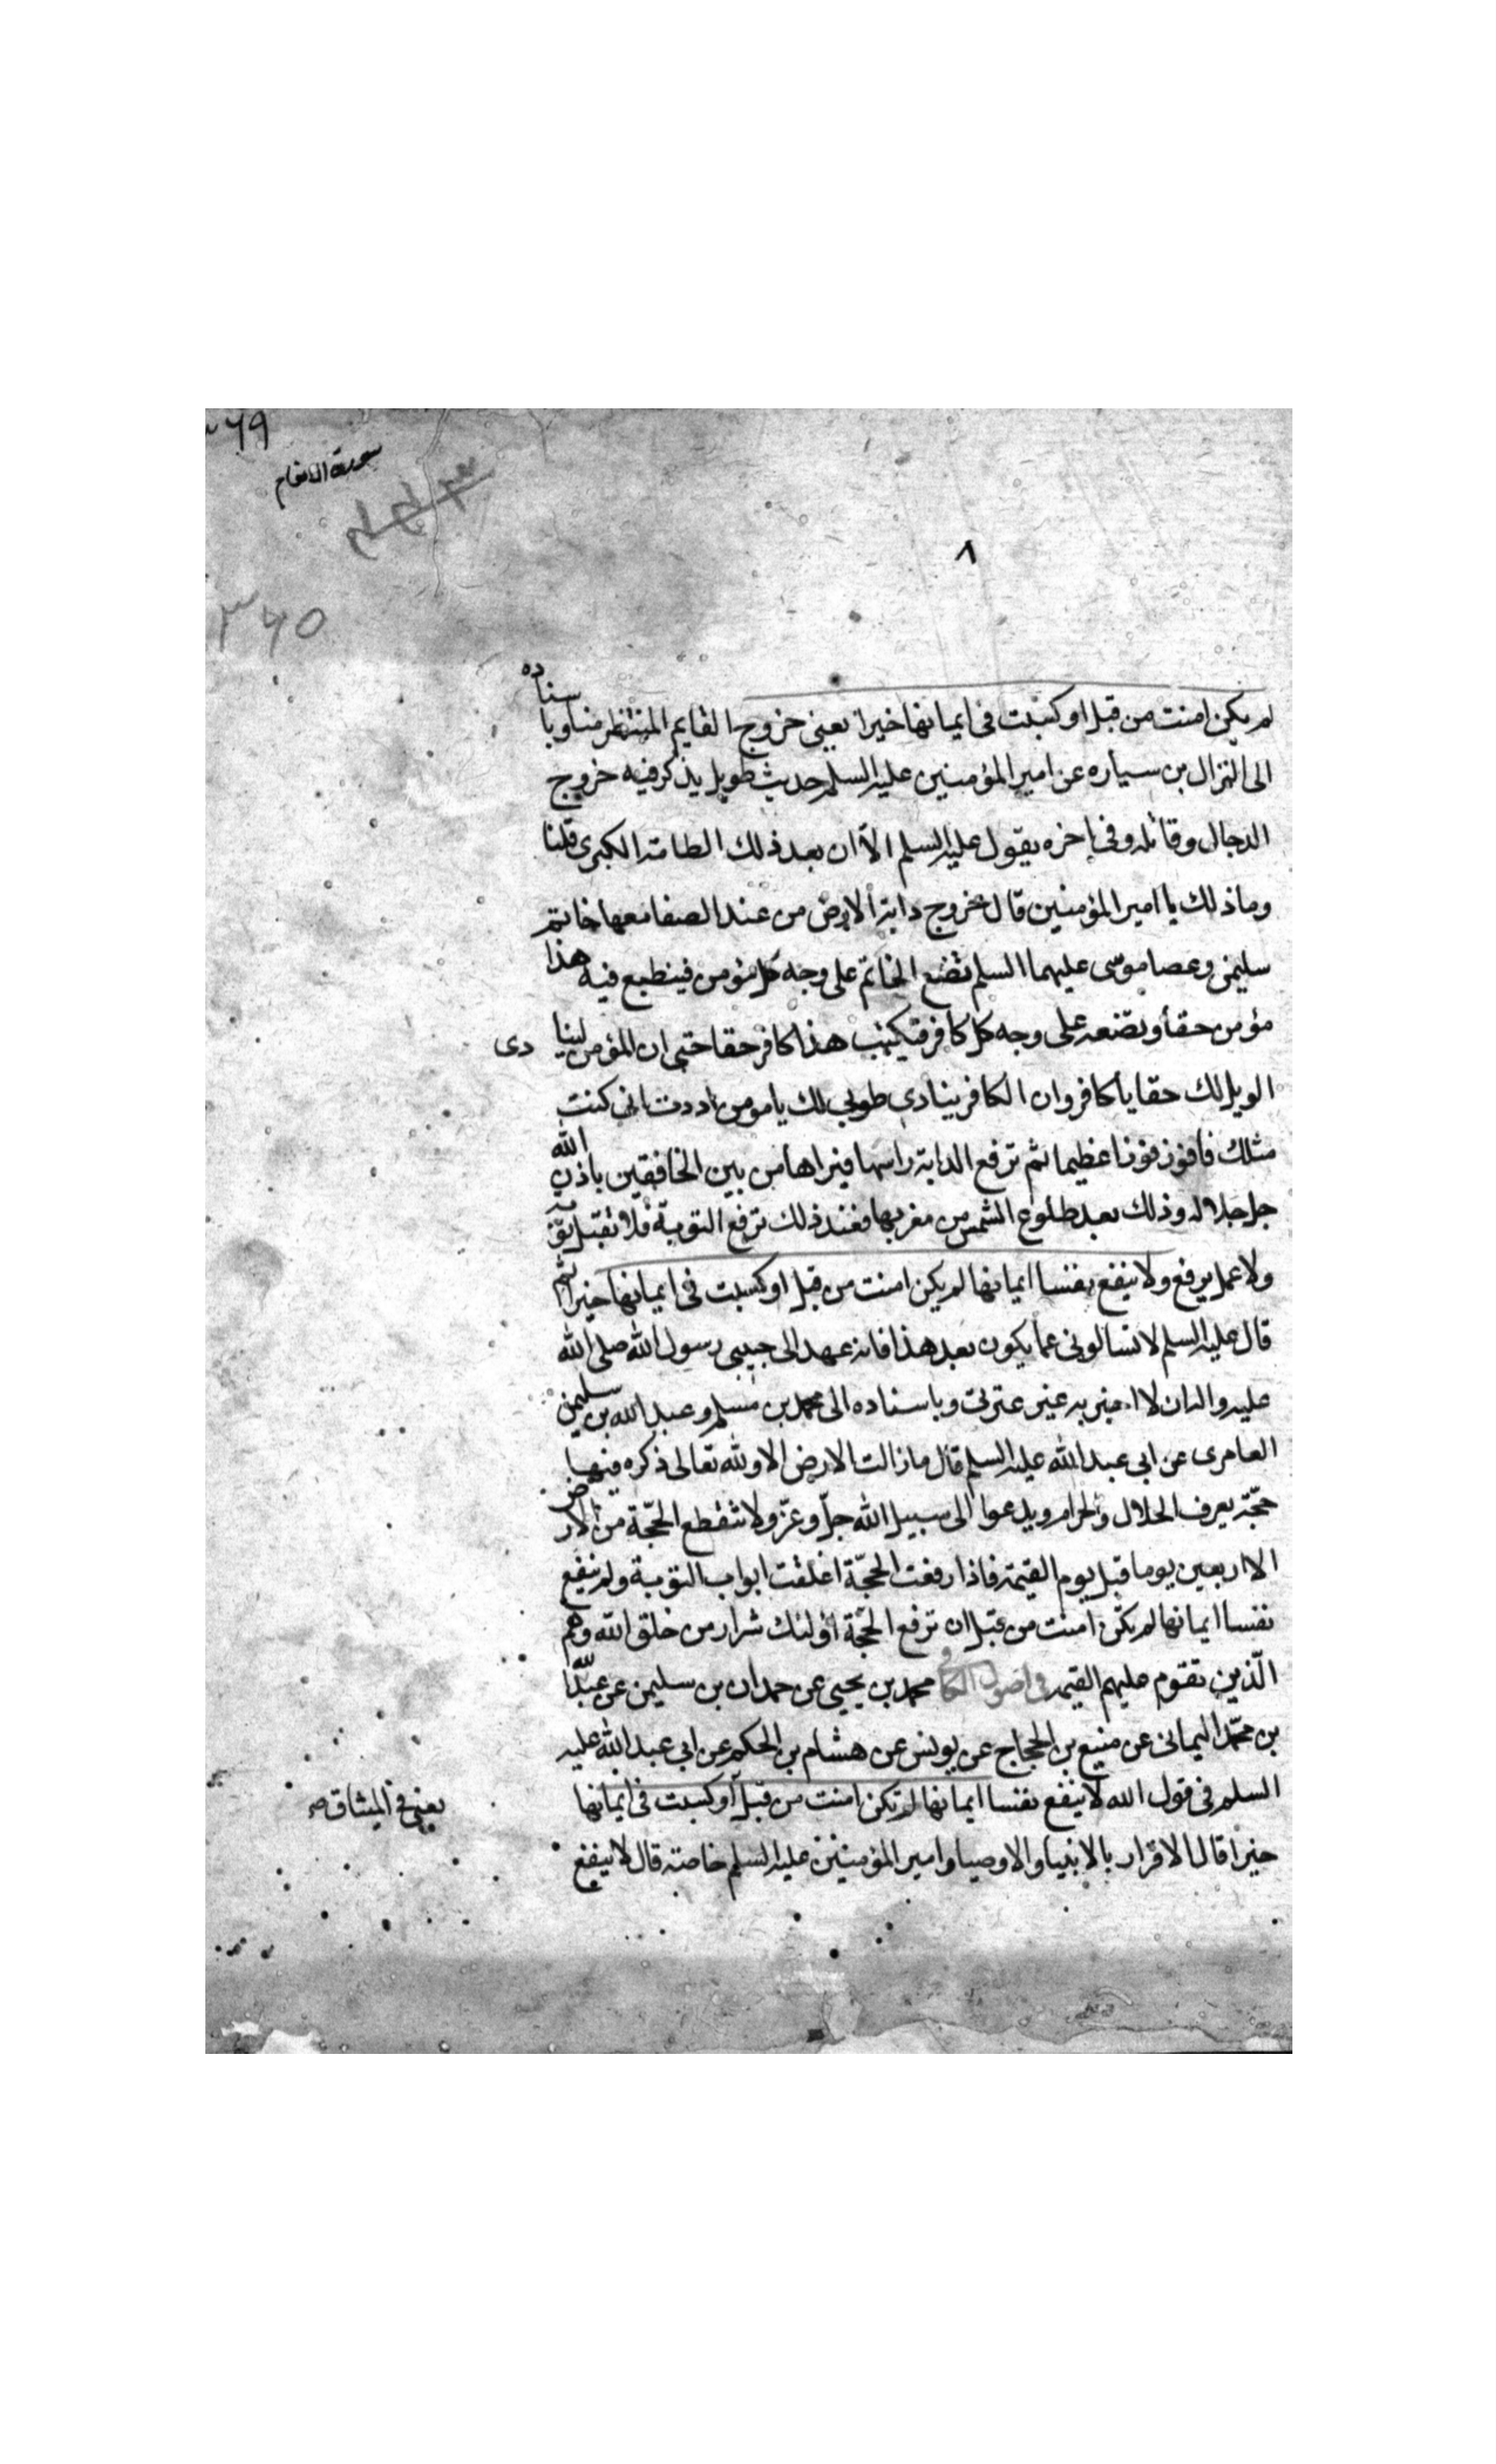 ٣٦٩
سورة الانعام
٨
٣٦٥
لم يكن امنت من قبل او كسبت فى ايمانها خيرا يعنى خروج القايم المنتظر منا وباسناده
الى النزال بن سياره عن امير المؤمنين عليه السلم حديث طويل يذكر فيه خروج
الدجال وقاتله وفى اخره يقول عليه السلم الا ان بعد ذلك الطامة الكبرى قلنا
وما ذلك يا امير المؤمنين قال خروج دابة الارض من عند الصفا معها خاتم
سليمن وعصا موسى عليهما السلم تضع الخاتم على وجه كل مؤمن فينطبع فيه هذا
مؤمن حقا وتضعه على وجه كل كافر فيكتب هذا كافر حقا حتى ان المؤمن لينادى
الويل لك حقا يا كافر وان الكافر ينادى طوبى لك يا مومن وددت انى كنت
مثلك فافوز فوزا عظيما ثم ترفع الدابة راسها فيراها من بين الخافقين باذن الله
جل جلاله وذلك بعد طلوع الشمس من مغربها فعند ذلك ترفع التوبة فلا تقبل توبة
ولا عمل يرفع ولا ينفع نفسا ايمانها لم يكن امنت من قبل او كسبت فى ايمانها خيرا ثم
قال عليه السلم لا تسالونى عما يكون بعد هذا فانه عهد الى حبيبى رسول الله صلى الله
عليه واله ان لا اخبر به غير عترتى وباسناده الى محمد بن مسلم وعبد الله بن سليمن
العامرى عن ابى عبد الله عليه السلم قال ما زالت الارض الا ولله تعالى ذكره فيها
حجّة يعرف الحلال والحرام ويدعوا الى سبيل الله جلّ وعزّ ولا تنقطع الحجّة من الارض
الا اربعين يوما قبل يوم القيمة فاذا رفعت الحجّة اغلقت ابواب التوبة ولم ينفع
نفسا ايمانها لم يكن امنت من قبل ان ترفع الحجّة اولئك شرار من خلق الله وهم
الّذين تقوم عليهم القيمة فى اصول الكافى محمد بن يحيى عن حمدان بن سليمن عن عبد الله
بن محمّد اليمانى عن منيع بن الحجاج عن يونس عن هشام بن الحكم عن ابى عبد الله عليه
السلم فى قول الله لا ينفع نفسا ايمانها لم تكن امنت من قبل او كسبت فى ايمانها
يعنى فى الميثاق صح
خيرا قال الاقرار بالانبيا والاوصيا وامير المؤمنين عليه السلم خاصة قال لا ينفع